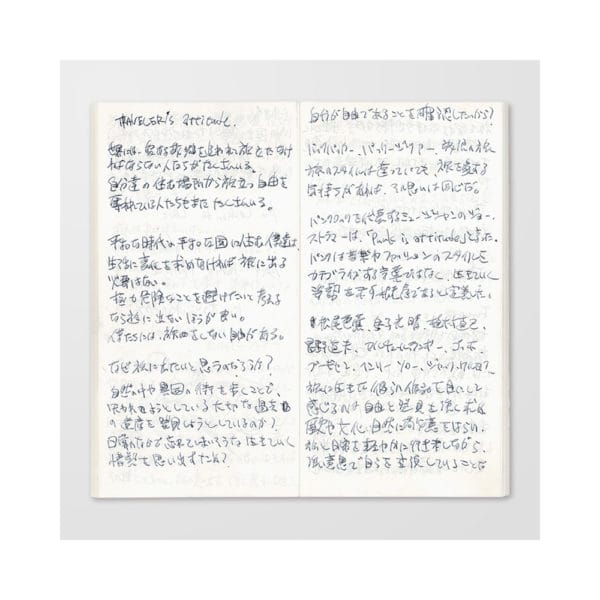 TRAVELER's attitude.
世界には、家を追われ旅立たなけ
ればならない人たちがたくさんいる。
自分達の住む場所から旅立つ自由を
奪われている人たちもまたたくさんいる。
平和な時代の平和な国に住む僕達は、
生活に変化を求めなければ旅に出る
必要はない。
極力危険なことを避けたいと考える
なら旅に出ないほうが良い。
僕たちには、旅をしない自由がある。
なぜ旅に出たいと思うのだろうか?
自然の中や異国の街を歩くことで、
失われようとしている大切な過去
の遺産を発見しようとしているのか?
日常のなかで忘れてしまいそうな生きていく
情熱を思い出すため?
自分が自由であることを確認したいから?
バックパッカー、パッケージツアー、
旅のスタイルは違っていても、旅を愛する
気持ちがあれば、その思いは同じだ。
パンクロックを代表するミュージシャンのジョー・
ストラマーは、「Punk is attitude」と言った。
パンクは音楽やファッションのスタイルを
カテゴライズする言葉ではなく、生きていく
姿勢を示す態度であると定義した。
松尾芭蕉、金子光晴、植村直己、
星野道夫、
ヘンリー・ソロー、ジャック・ケルアック
旅に生きた彼らの作品を目にして
感じるのは自由と発見を強く求め
歴史や文化、自然に敬意をはらい、
旅と日常を軽やかに行き来しながら、
強い意思で自らを表現していることだ